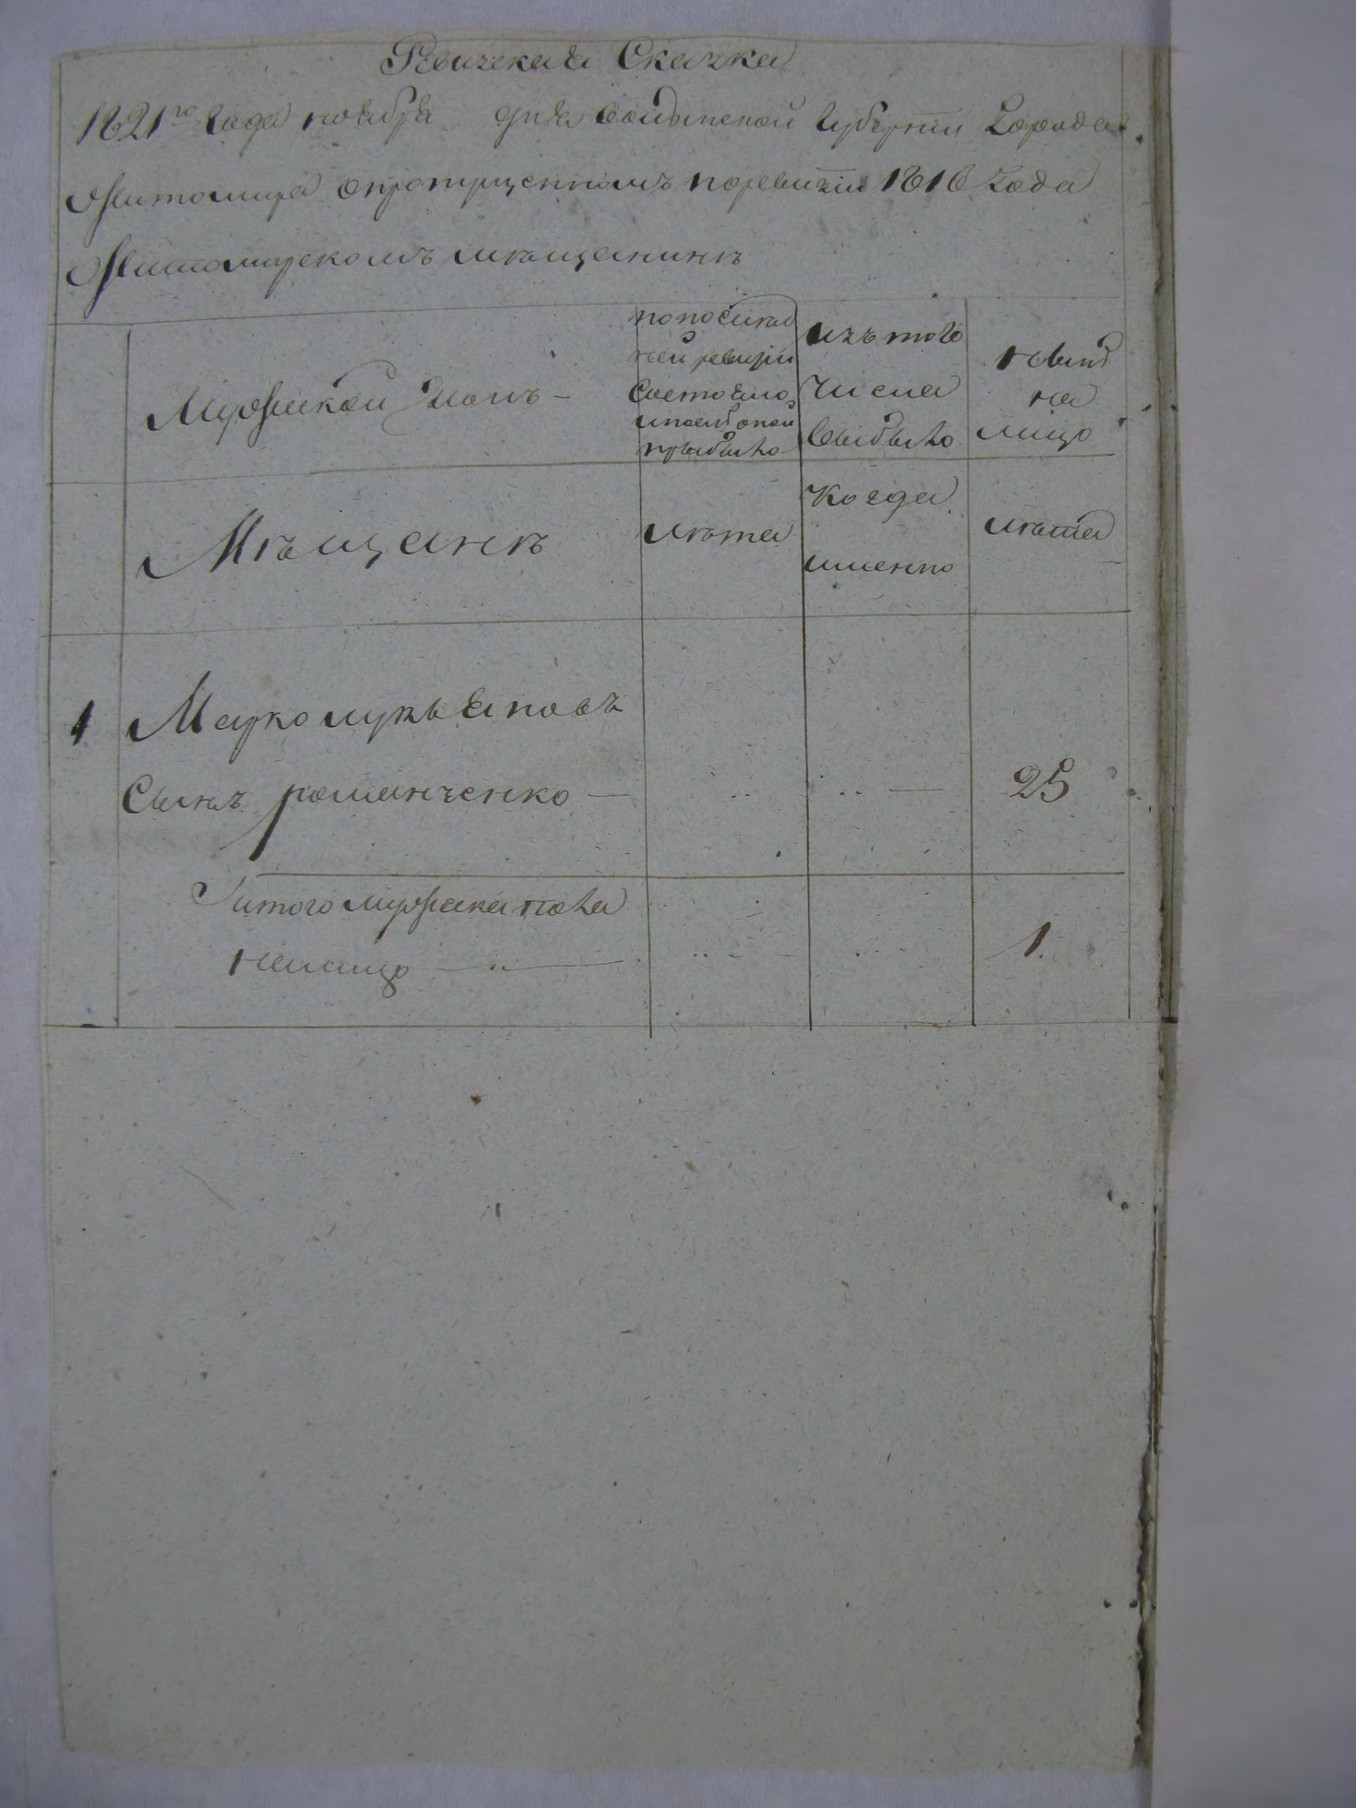 Ревизская Сказка
1821го года ноября дня Волынской Губернии Города
Житомира опропущенномъ поревизіи 1816 года
Житомирскомъ мѣщанинѣ
Мужескои полъ -
попослѣд
неи ревизіи
Состояло,
ипослѣ оной
прибыло
изъ того
Числа
Выбыло
Нынѣ
на
лицо
Мѣщанѣ
лѣта
Когда
имянно
лѣта
1 Марко лукьяновъ
Сынъ романченко — 25
Iитого мужеска пола
налицо — 1.